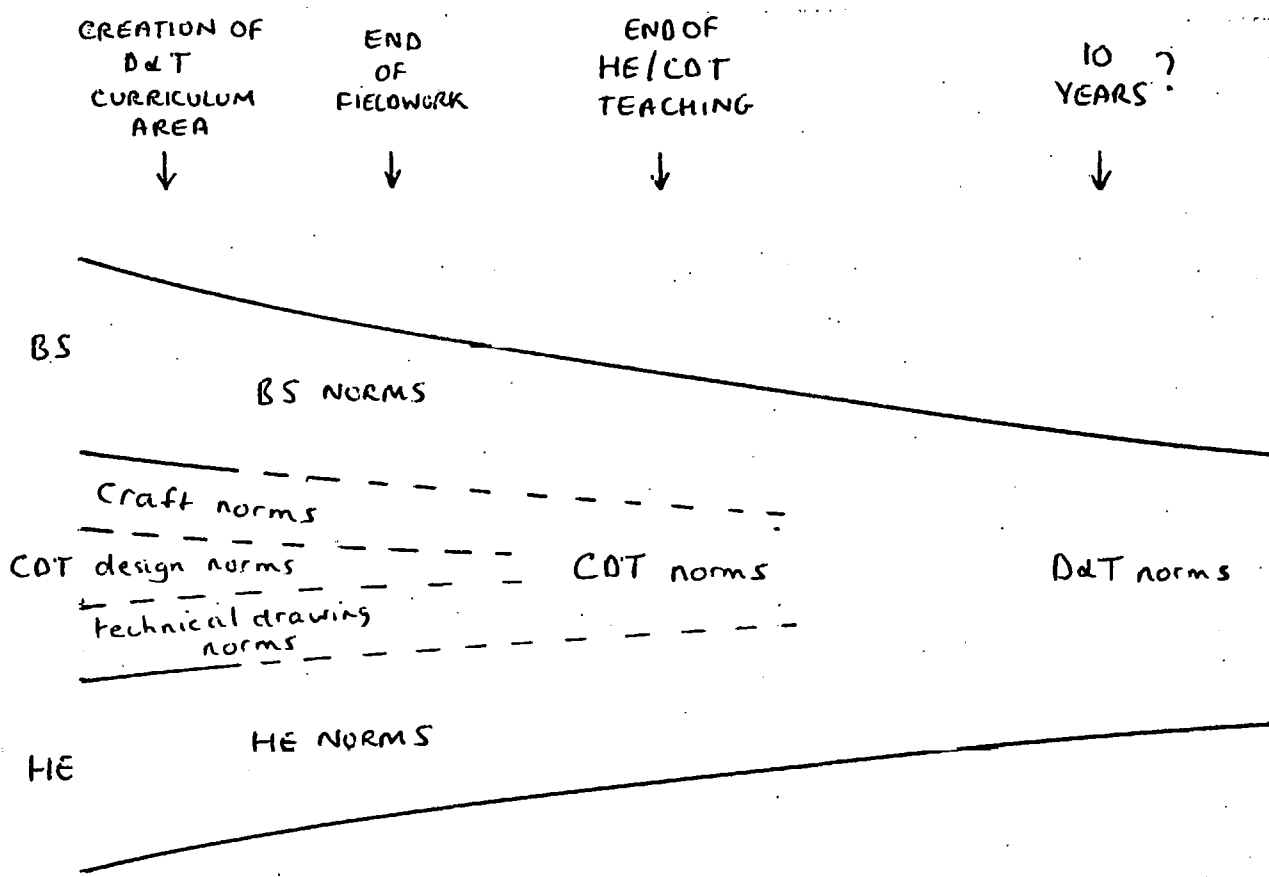 CREATION OF
D&T
CURRICULUM
AREA
END
OF
FIELDWORK
END OF
HE/CDT
TEACHING
10
YEARS?
BS
BS NORMS
Craft norms
CDT design norms
CDT norms
D&T norms
technical drawing
norms
HE NORMS
HE